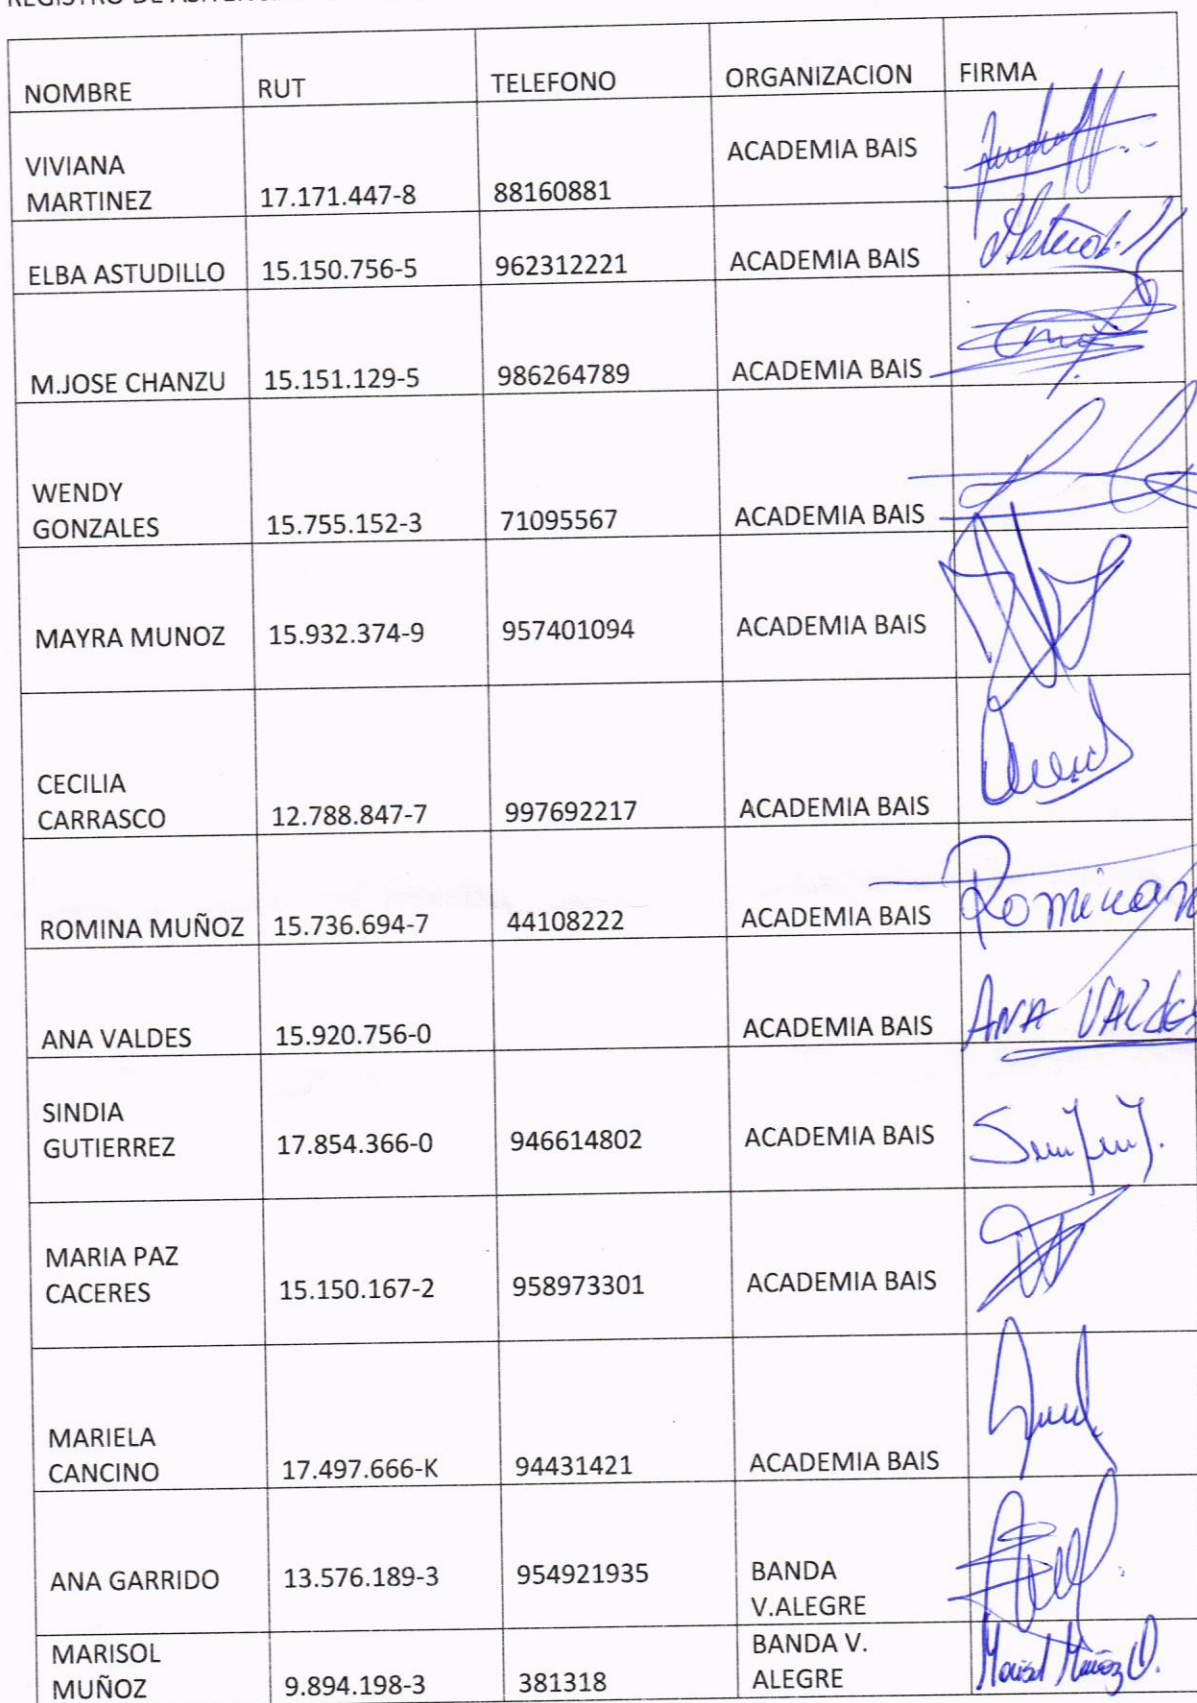 REGISTRO DE
NOMBRE RUT TELEFONO ORGANIZACION FIRMA
VIVIANA
MARTINEZ 17.171.447-8 88160881 ACADEMIA BAIS
ELBA ASTUDILLO 15.150.756-5 962312221 ACADEMIA BAIS
M.JOSE CHANZU 15.151.129-5 986264789 ACADEMIA BAIS
WENDY
GONZALES 15.755.152-3 71095567 ACADEMIA BAIS
MAYRA MUNOZ 15.932.374-9 957401094 ACADEMIA BAIS
CECILIA
CARRASCO 12.788.847-7 997692217 ACADEMIA BAIS
ROMINA MUÑOZ 15.736.694-7 44108222 ACADEMIA BAIS
ANA VALDES 15.920.756-0 ACADEMIA BAIS ANA VALdES
SINDIA
GUTIERREZ 17.854.366-0 946614802 ACADEMIA BAIS
MARIA PAZ
CACERES 15.150.167-2 958973301 ACADEMIA BAIS
MARIELA
CANCINO 17.497.666-K 94431421 ACADEMIA BAIS
ANA GARRIDO 13.576.189-3 954921935 BANDA
V.ALEGRE
MARISOL BANDA V.
MUÑOZ 9.894.198-3 381318 ALEGRE Marisol Muñoz O.